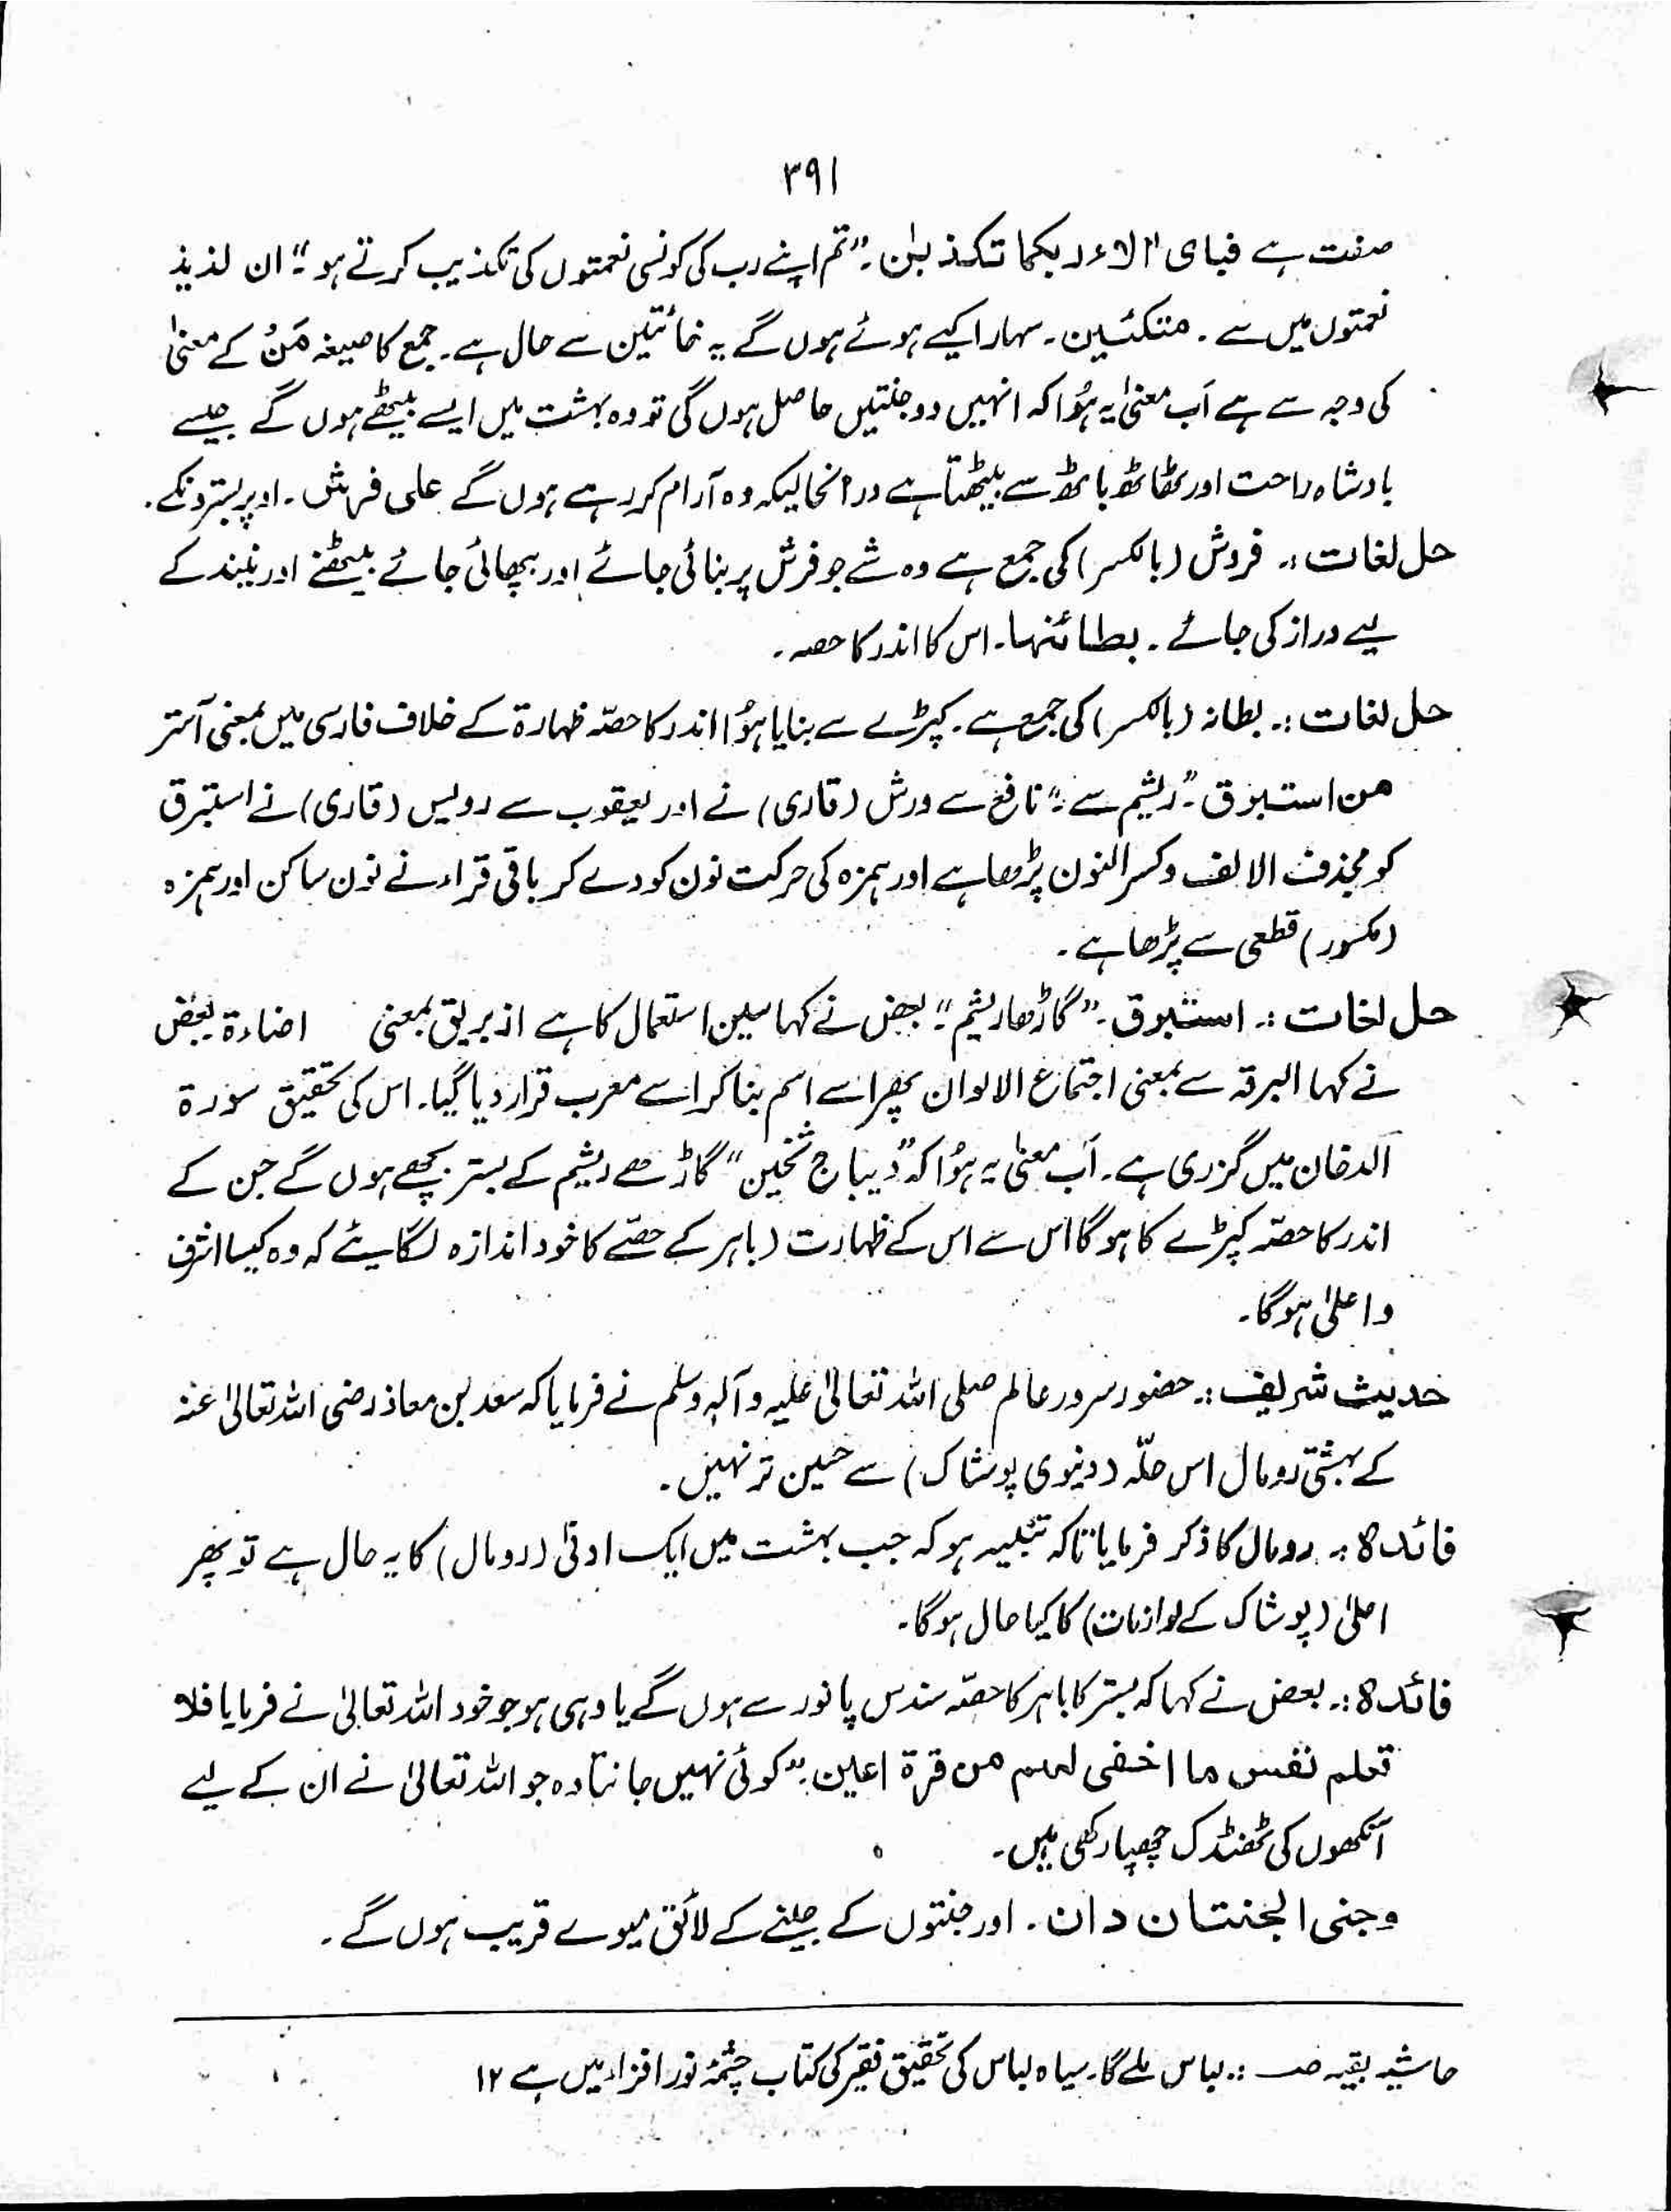 ۳۹۱
صفت ہے فبای الاء ربکما تکذبٰن۔ "تم اپنے رب کی کونسی نعمتوں کی تکذیب کرتے ہو"۔ ان لذیذ
نعمتوں میں سے ۔ متکئین۔ سہارا کیے ہوئے ہوں گے یہ خائفین سے حال ہے۔ جمع کا صیغہ مَنْ کے معنیٰ
کی وجہ سے ہے اَب معنیٰ یہ ہُوا کہ انہیں دو جنتیں حاصل ہوں گی تو وہ بہشت میں ایسے بیٹھے ہوں گے جیسے
بادشاہ راحت اور ٹھاٹھ باٹھ سے بیٹھتا ہے درانحالیکہ وہ آرام کر رہے ہوں گے علی فرش ۔ اوپر بستروں کے۔
حل لغات :۔ فروش (بالکسر) کی جمع ہے وہ شے جو فرش پر بنائی جائے اور بچھائی جائے بیٹھنے اور نیند کے
لیے دراز کی جائے ۔ بطائنہا۔ اس کا اندر کا حصہ ۔
حل لغات :۔ بطانہ (بالکسر) کی جمع ہے ۔ کپڑے سے بنایا ہُوا اندر کا حصّہ ظہارۃ کے خلاف فارسی میں بمعنی آستر
من استبرق ۔ "ریشم سے"۔ نافع سے ورش (قاری) نے اور یعقوب سے رویس (قاری) نے استبرق
کو بحذف الالف وکسر النون پڑھا ہے اور ہمزہ کی حرکت نون کو دے کر باقی قراء نے نون ساکن اور ہمزہ
(مکسور) قطعی سے پڑھا ہے ۔
حل لغات :۔ استبرق ۔ "گاڑھا ریشم"۔ بعض نے کہا سین استعمال کا ہے از بریق بمعنی اضاءۃ بعض
نے کہا البرقہ سے بمعنی اجتماع الالوان پھر اسے اسم بنا کر اسے معرب قرار دیا گیا۔ اس کی تحقیق سورۃ
الدخان میں گزری ہے ۔ اَب معنیٰ یہ ہُوا کہ "دیباج ثخین" گاڑھے ریشم کے بستر بچھے ہوں گے جن کے
اندر کا حصّہ کپڑے کا ہوگا اس سے اس کے ظہارت (باہر کے حصّے کا خود اندازہ لگائیے کہ وہ کیسا اشرف
واعلیٰ ہوگا۔
حدیث شریف :۔ حضور سرور عالم صلی اللہ تعالیٰ علیہ وآلہٖ وسلم نے فرمایا کہ سعد بن معاذ رضی اللہ تعالیٰ عنہ
کے بہشتی رومال اس حلّہ (دنیوی پوشاک) سے حسین تر نہیں ۔
فائدہ :۔ رومال کا ذکر فرمایا تاکہ تنبیہ ہو کہ جب بہشت میں ایک ادنیٰ (رومال) کا یہ حال ہے تو پھر
اعلیٰ (پوشاک کے لوازمات) کا کیا حال ہوگا۔
فائدہ :۔ بعض نے کہا کہ بستر کا باہر کا حصّہ سندس یا نور سے ہوں گے یا وہی ہو جو خود اللہ تعالیٰ نے فرمایا فلا
تعلم نفس ما اخفی لہم من قرۃ اعین ۔ "کوئی نہیں جانتا وہ جو اللہ تعالیٰ نے ان کے لیے
آنکھوں کی ٹھنڈک چھپا رکھی ہیں۔
وجنی الجنتان دان ۔ اور جنتوں کے چننے کے لائق میوے قریب ہوں گے ۔
حاشیہ بقیہ صـ :۔ لباس ملے گا۔ سیاہ لباس کی تحقیق فقیر کی کتاب چشمۂ نور افزاء میں ہے ۱۲